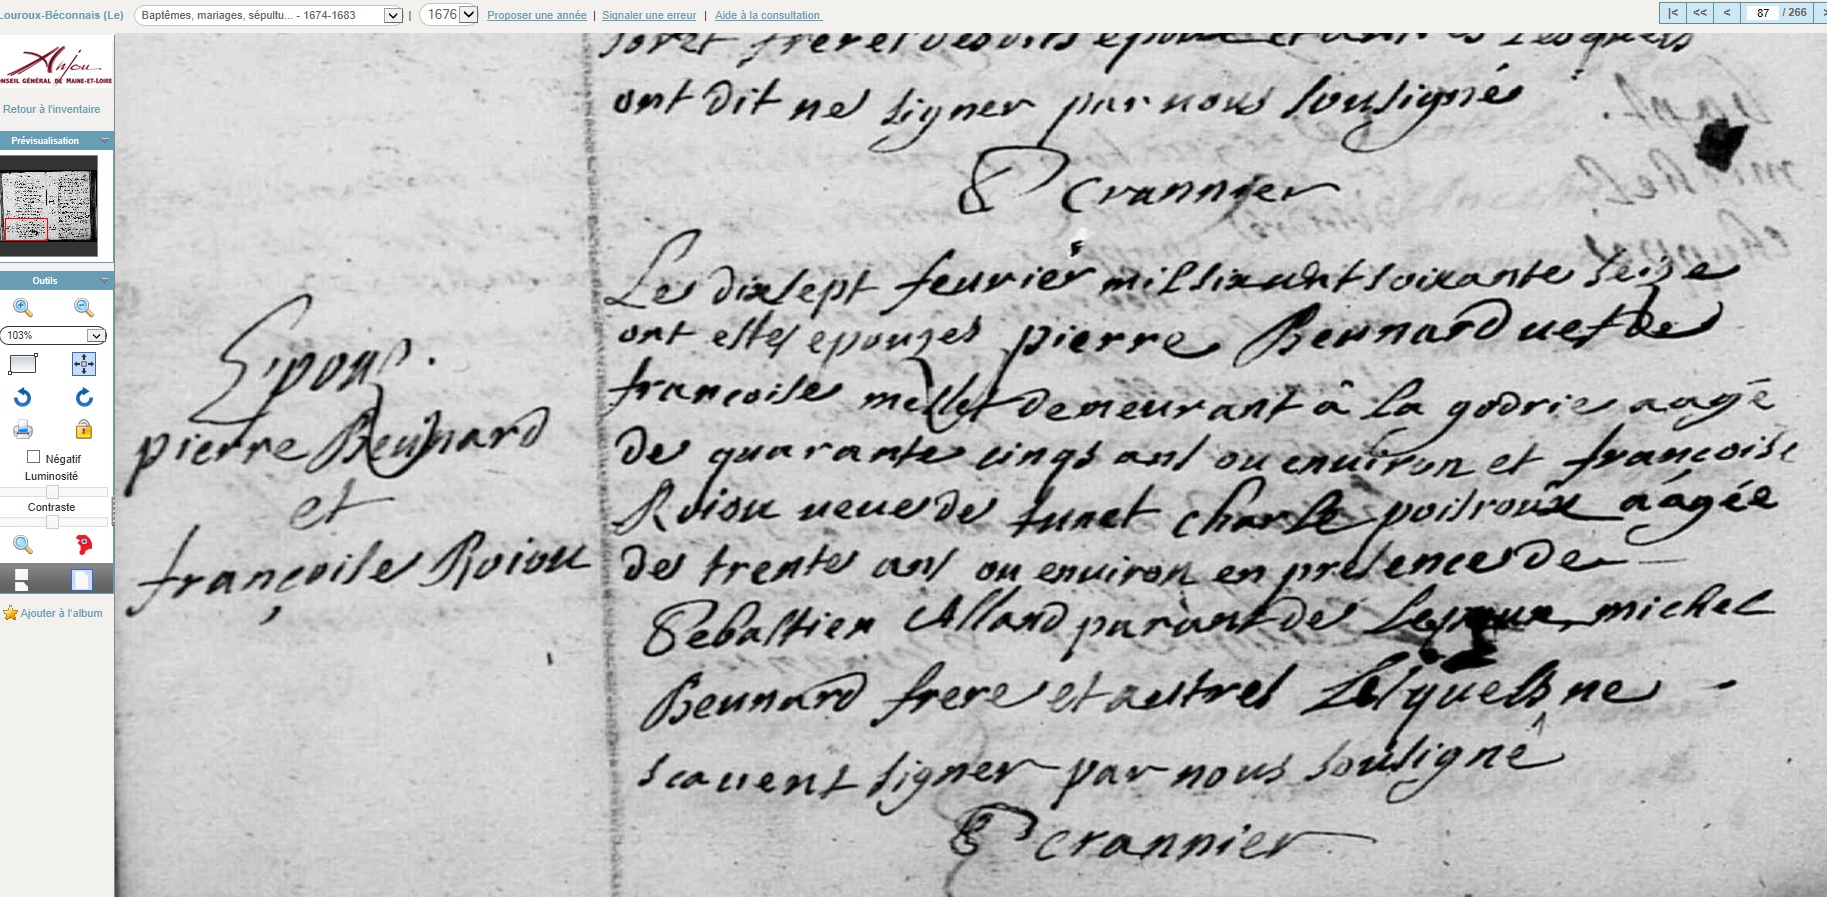 Louroux-Béconnais (Le)
Baptêmes, mariages, sépultu... - 1674-1683 | 1676 Proposer une année | Signaler une erreur | Aide à la consultation
|< << < 87 / 266 >
Anjou
CONSEIL GÉNÉRAL DE MAINE-ET-LOIRE
Retour à l'inventaire
Prévisualisation
Outils
103%
Négatif
Luminosité
Contraste
Ajouter à l'album
ont dit ne signer par nous sousigné
crannier
Espous.
pierre Beunard
et
françoise Roiou
Le dixsept feuvrier mil six cent soixante seize
ont estes epouzes pierre Beunard vef de
françoise mellet demeurant â la godrie aagé
de quarante cinqs ans ou enuiron et françoise
Roiou veuve de funct charle poisroux aagée
de trente ans ou enuiron en presence de
Sebastien Alland parant de michel
Beunard frere et autres Lesquels ne
scauent signer par nous sousigné
crannier